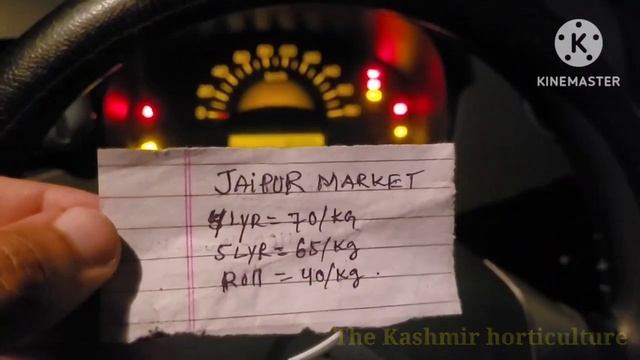 KINEMASTER
JAIPUR MARKET
4 LYR = 70/KG
5 LYR = 65/KG
Roll = 40/KG.
The Kashmir horticulture